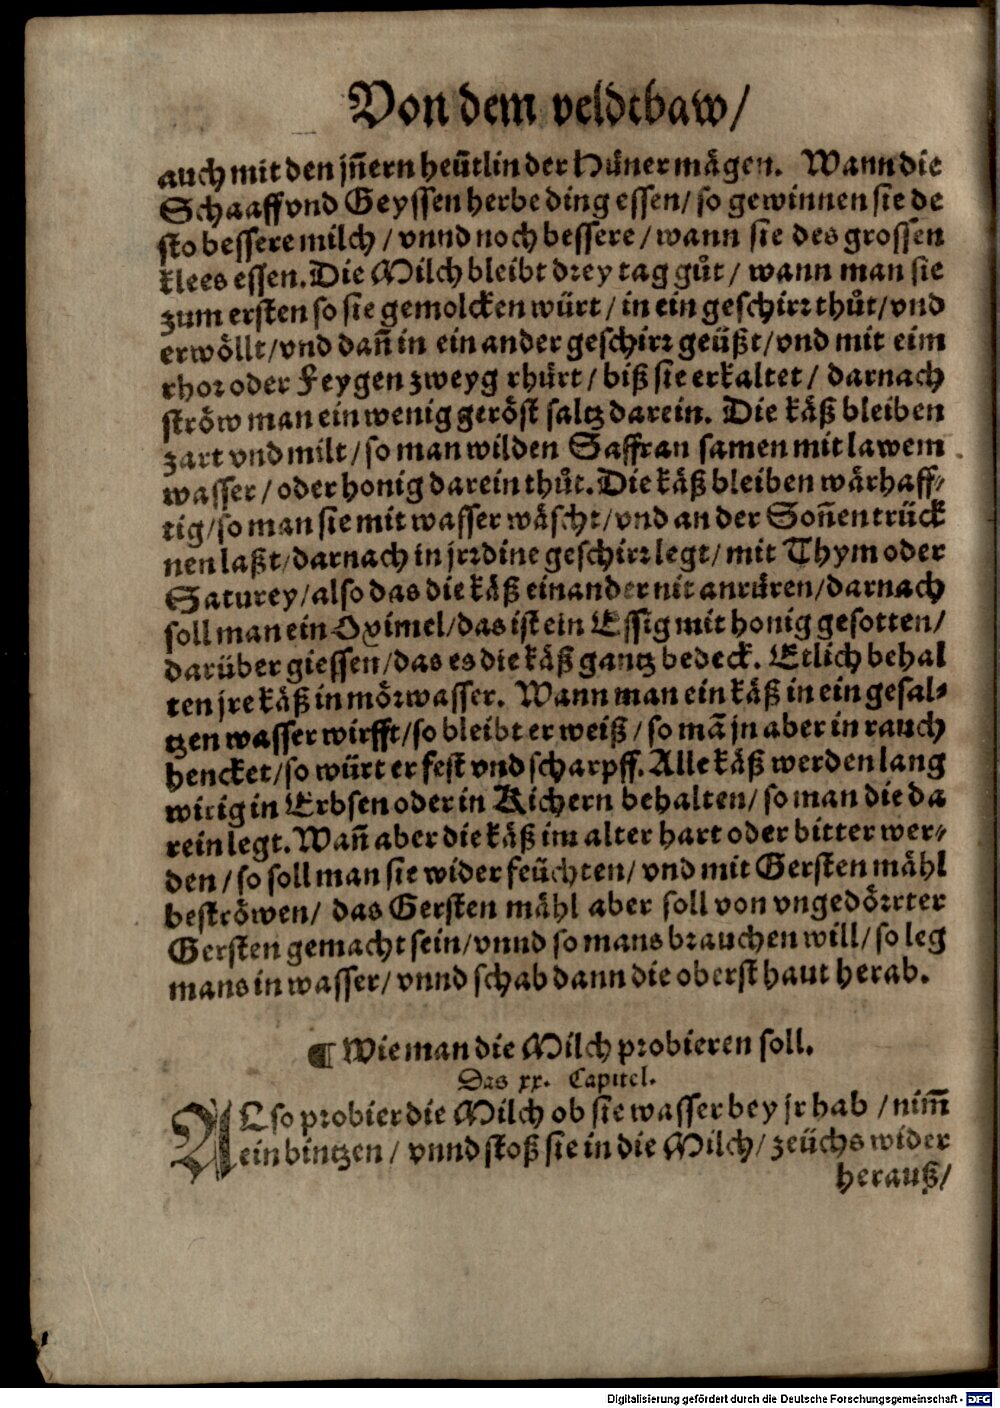 Von dem veldtbaw/
auch mit den jñern heütlin der Hüner mägen. Wann die
Schaaff vnd Geyssen herbe ding essen/ so gewinnen sie de
sto bessere milch / vnnd noch bessere / wann sie des grossen
klees essen. Die Milch bleibt drey tag gůt / wann man sie
zum ersten so sie gemolcken würt / in ein geschirr thůt / vnd
erwöllt / vnd dañ in ein ander geschirr geüßt / vnd mit eim
rhor oder Feygen zweyg rhürt / biß sie erkaltet / darnach
ströw man ein wenig geröst saltz darein. Die käß bleiben
zart vnd milt / so man wilden Saffran samen mit lawem
wasser / oder honig darein thůt. Die käß bleiben wärhaff⸗
tig / so man sie mit wasser wäscht / vnd an der Soñen trück
nen laßt / darnach in jrrdine geschirr legt / mit Thym oder
Saturey / also das die käß einander nit anrüren / darnach
soll man ein Oximel / das ist ein Essig mit honig gesotten /
darüber giessen / das es die käß gantz bedeck. Etlich behal
ten jre käß in mörwasser. Wann man ein käß in ein gesal⸗
tzen wasser wirfft / so bleibt er weiß / so mã jn aber in rauch
hencket / so würt er fest vnd scharpff. Alle käß werden lang
wirig in Erbsen oder in Kichern behalten / so man die da
rein legt. Wañ aber die käß im alter hart oder bitter wer⸗
den / so soll man sie wider feüchten / vnd mit Gersten mähl
beströwen / das Gersten mähl aber soll von vngedörrter
Gersten gemacht sein / vnnd so mans brauchen will / so leg
mans in wasser / vnnd schab dann die oberst haut herab.
¶ Wie man die Milch probieren soll.
Das xx. Capitel.
ALso probier die Milch ob sie wasser bey jr hab / nim̃
ein bintzen / vnnd stoß sie in die Milch / zeüchs wider
herauß/
Digitalisierung gefördert durch die Deutsche Forschungsgemeinschaft - DFG